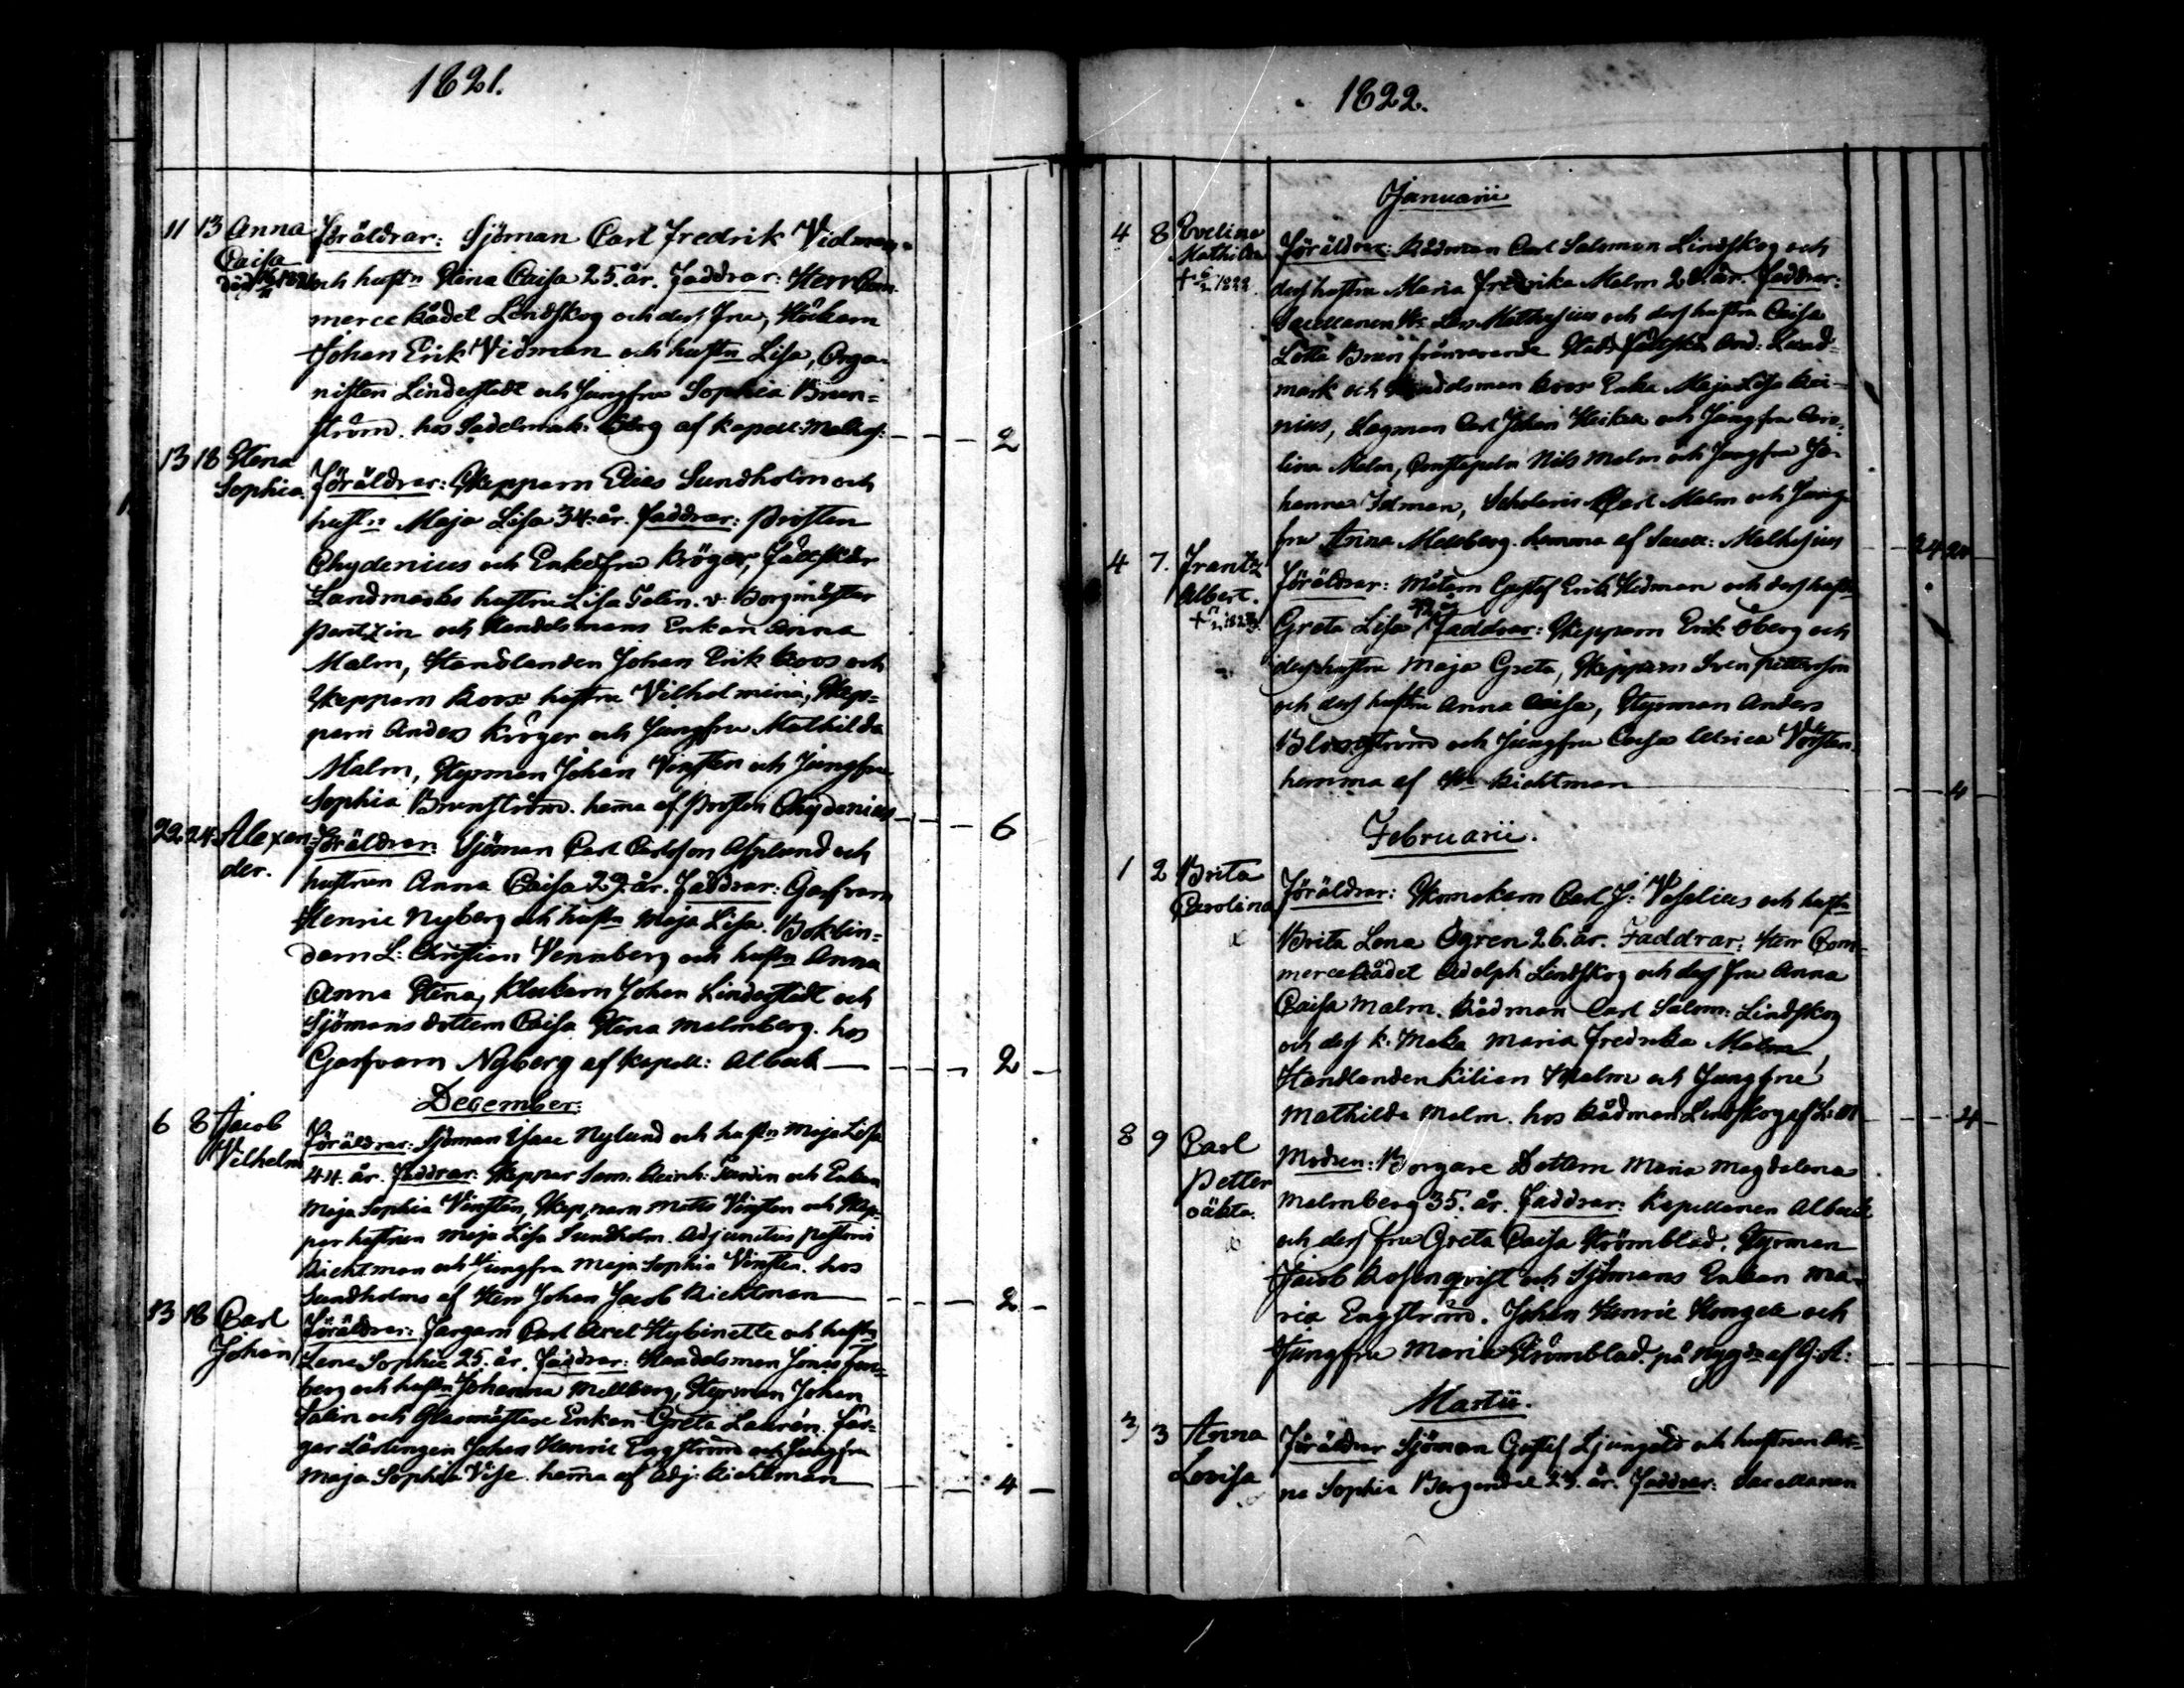 1821.
11 13 Anna Föräldrar: Sjöman Carl Fredrik Vidman
Caisa
och hustn Stina Caisa 25. år. Faddrar: Herr Com-
merce Rådet Lindskog och dess fru, Hökarn
Johan Erik Vidman och hustn Lisa, Orga-
nisten Lindestedt och Jungfru Sophia Brun=
ström. hos Sadelmak: Berg af Kapell: Malhes: 2
13 18 Stena
Sophia. Föräldrar: Skepparn Elias Sundholm och
hustn Maja Lisa 34. år. Faddrar: Prosten
Chydenius och Enkefru Kröger, Fältskär
Landmarks hustru Lisa Talin. v: Borgmästar
Pantzin och Handelsmans Enkan Anna
Malm, Handlanden Johan Erik Roos och
Skepparn Roos hustru Vilhelmina, Skep=
parn Anders Kröger och Jungfru Mathilda
Malm, Styrman Johan Vinsten och Jungfru
Sophia Brunström. hema af Prosten Chydenius 6
22. 24. Alexan= Föräldrar: Sjöman Carl Carlsson Asplund och
der. hustrun Anna Caisa 29. år. Faddrar: Garfvarn
Henric Nyberg och hustn Maja Lisa. Bokbin=
darn L: Christian Vennberg och hustn Anna
Anna Stina, Klockarn Johan Lindestedt och
Sjömans dottern Caisa Stina Malmberg. hos
Garfvarn Nyberg af Kapell: Alback 2
December:
6 8 Jacob Föräldrar: Sjöman Isaac Nylund och hustn Maja Lisa
Vilhelm 44. år. Faddrar: Skeppar Sam: Reinh: Tardin och Enkan
Maja Sophia Vinsten, Skepparn Matts Vinsten och Skep-
par hustrun Maja Lisa Sundholm. Adjunctus Pastoris
Kichtman och Jungfru Maja Sophia Vinsten. hos
Sundholms af Herr Johan Jacob Kichtman 2
13 18 Carl Föräldrar: Färgarn Carl Axel Hybinette och hustn
Johan Lena Sophia 25. år. Faddrar: Handelsman Jonas
berg och hustn Johanna Mellberg, Styrman Johan
Talin och Glasmästare Enkan Greta Laurén. Fär-
gar Lärlingen Johan Henric Engström och Jungfru
Maja Sophia Vise. hema af Adj: Kichtman 4
1822.
Januarii
4 8 Evelina
Mathilda Föräldrar: Rådman Carl Salomon Lindskog och
+ 6/2 1822. dess hustru Maria Fredrika Malm 28. år. Faddrar:
Sacellanen Hr Lars Mathesius och dess hustru Caisa
Lotta Brun frånvarande Stads Fältskär And: Land-
mark och Handelsman Roos Enka Maja Lisa Rei-
nius, Lagman Carl Johan Heiken och Jungfru Caro-
lina Malm, Constapeln Nils Malm och Jungfru Jo-
hanna Idman, Scholaris Carl Malm och Jung-
fru Anna Mellberg. hemma af Sacell: Mathesius
4 7. Frantz
Albert. Föräldrar: Målarn Gustaf Erik Hedman och dess hustn
Greta Lisa Faddrar: Skepparn Erik Öberg och
dess hustru Maja Greta, Skepparn Sven Pettersson
och dess hustru Anna Caisa, Styrman Anders
Blomström och Jungfru Caisa Ulrica
hemma af Hr Kichtman 4
Februarii.
1 2 Brita
Carolina Föräldrar: Skomakarn Carl J: Vaselius och hustn
Brita Lena Ögren 26. år. Faddrar: Herr Com-
merceRådet Adolph Lindskog och dess fru Anna
Caisa Malm. Rådman Carl Salom: Lindskog
och dess k: Maka Maria Fredrika Malm,
Handlanden Kilian Malm och Jungfru
Mathilda Malm. hos Rådman Lindskog af L: M 4
8 9 Carl
Petter
oäkta. Modren: Borgare Dottern Maria Magdalena
Malmberg 35. år. Faddrar: Kapellanen Alback
och dess fru Greta Caisa Strömblad. Styrman
Jacob Rosenqvist och Sjömans Enkan Ma-
ria Engström. Johan Henric Kongell och
Jungfru Maria Strömblad.
Martii.
3 3 Anna
Lovisa Föräldrar Sjöman Gustaf Ljungdes och hustrun An-
na Sophia Bergendal 23. år. Faddrar: Sacellanen